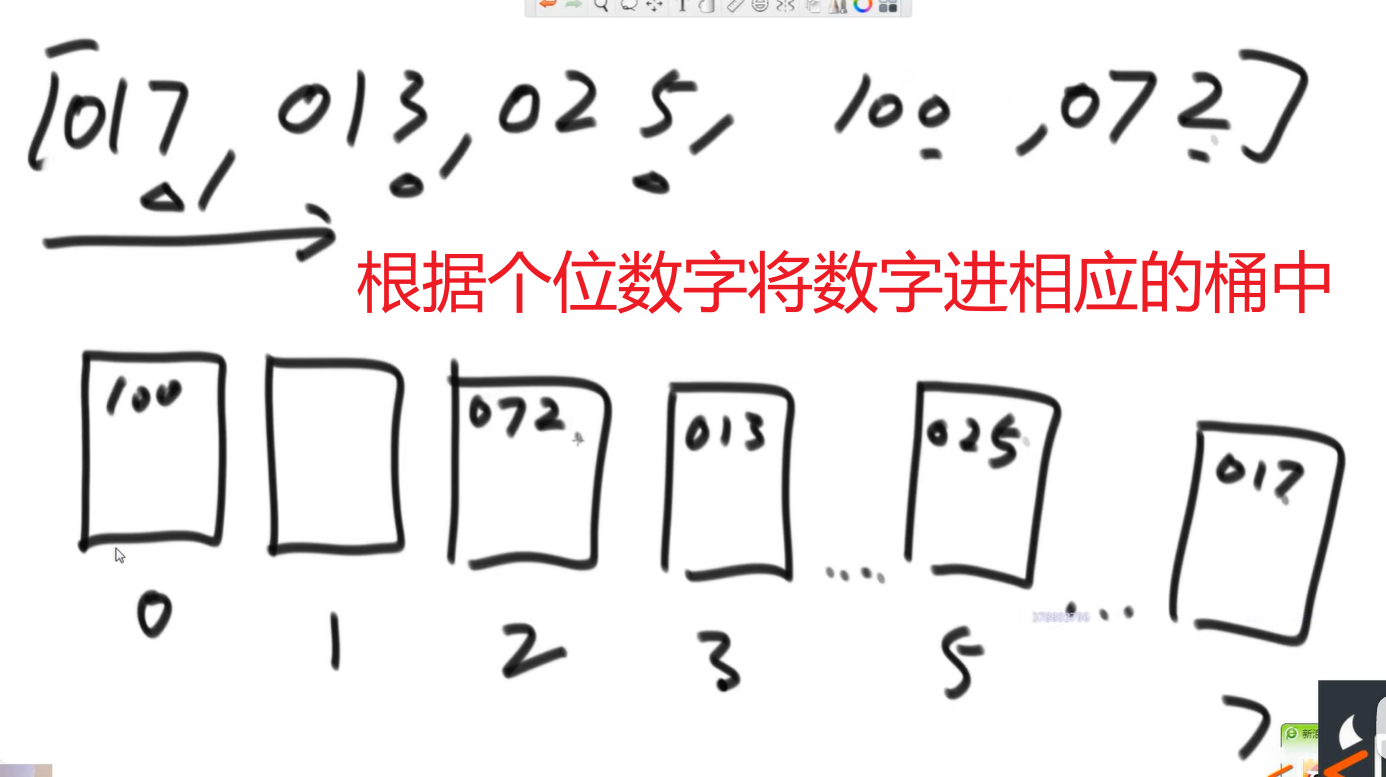 [017, 013, 025, 100, 072]
根据个位数字将数字进相应的桶中
100 072 013 025 017
0 1 2 3 5 7